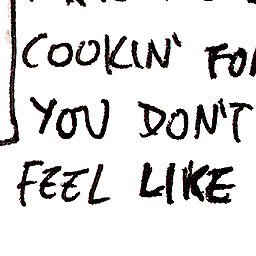 COOKIN' FO
YOU DON'T
FEEL LIKE